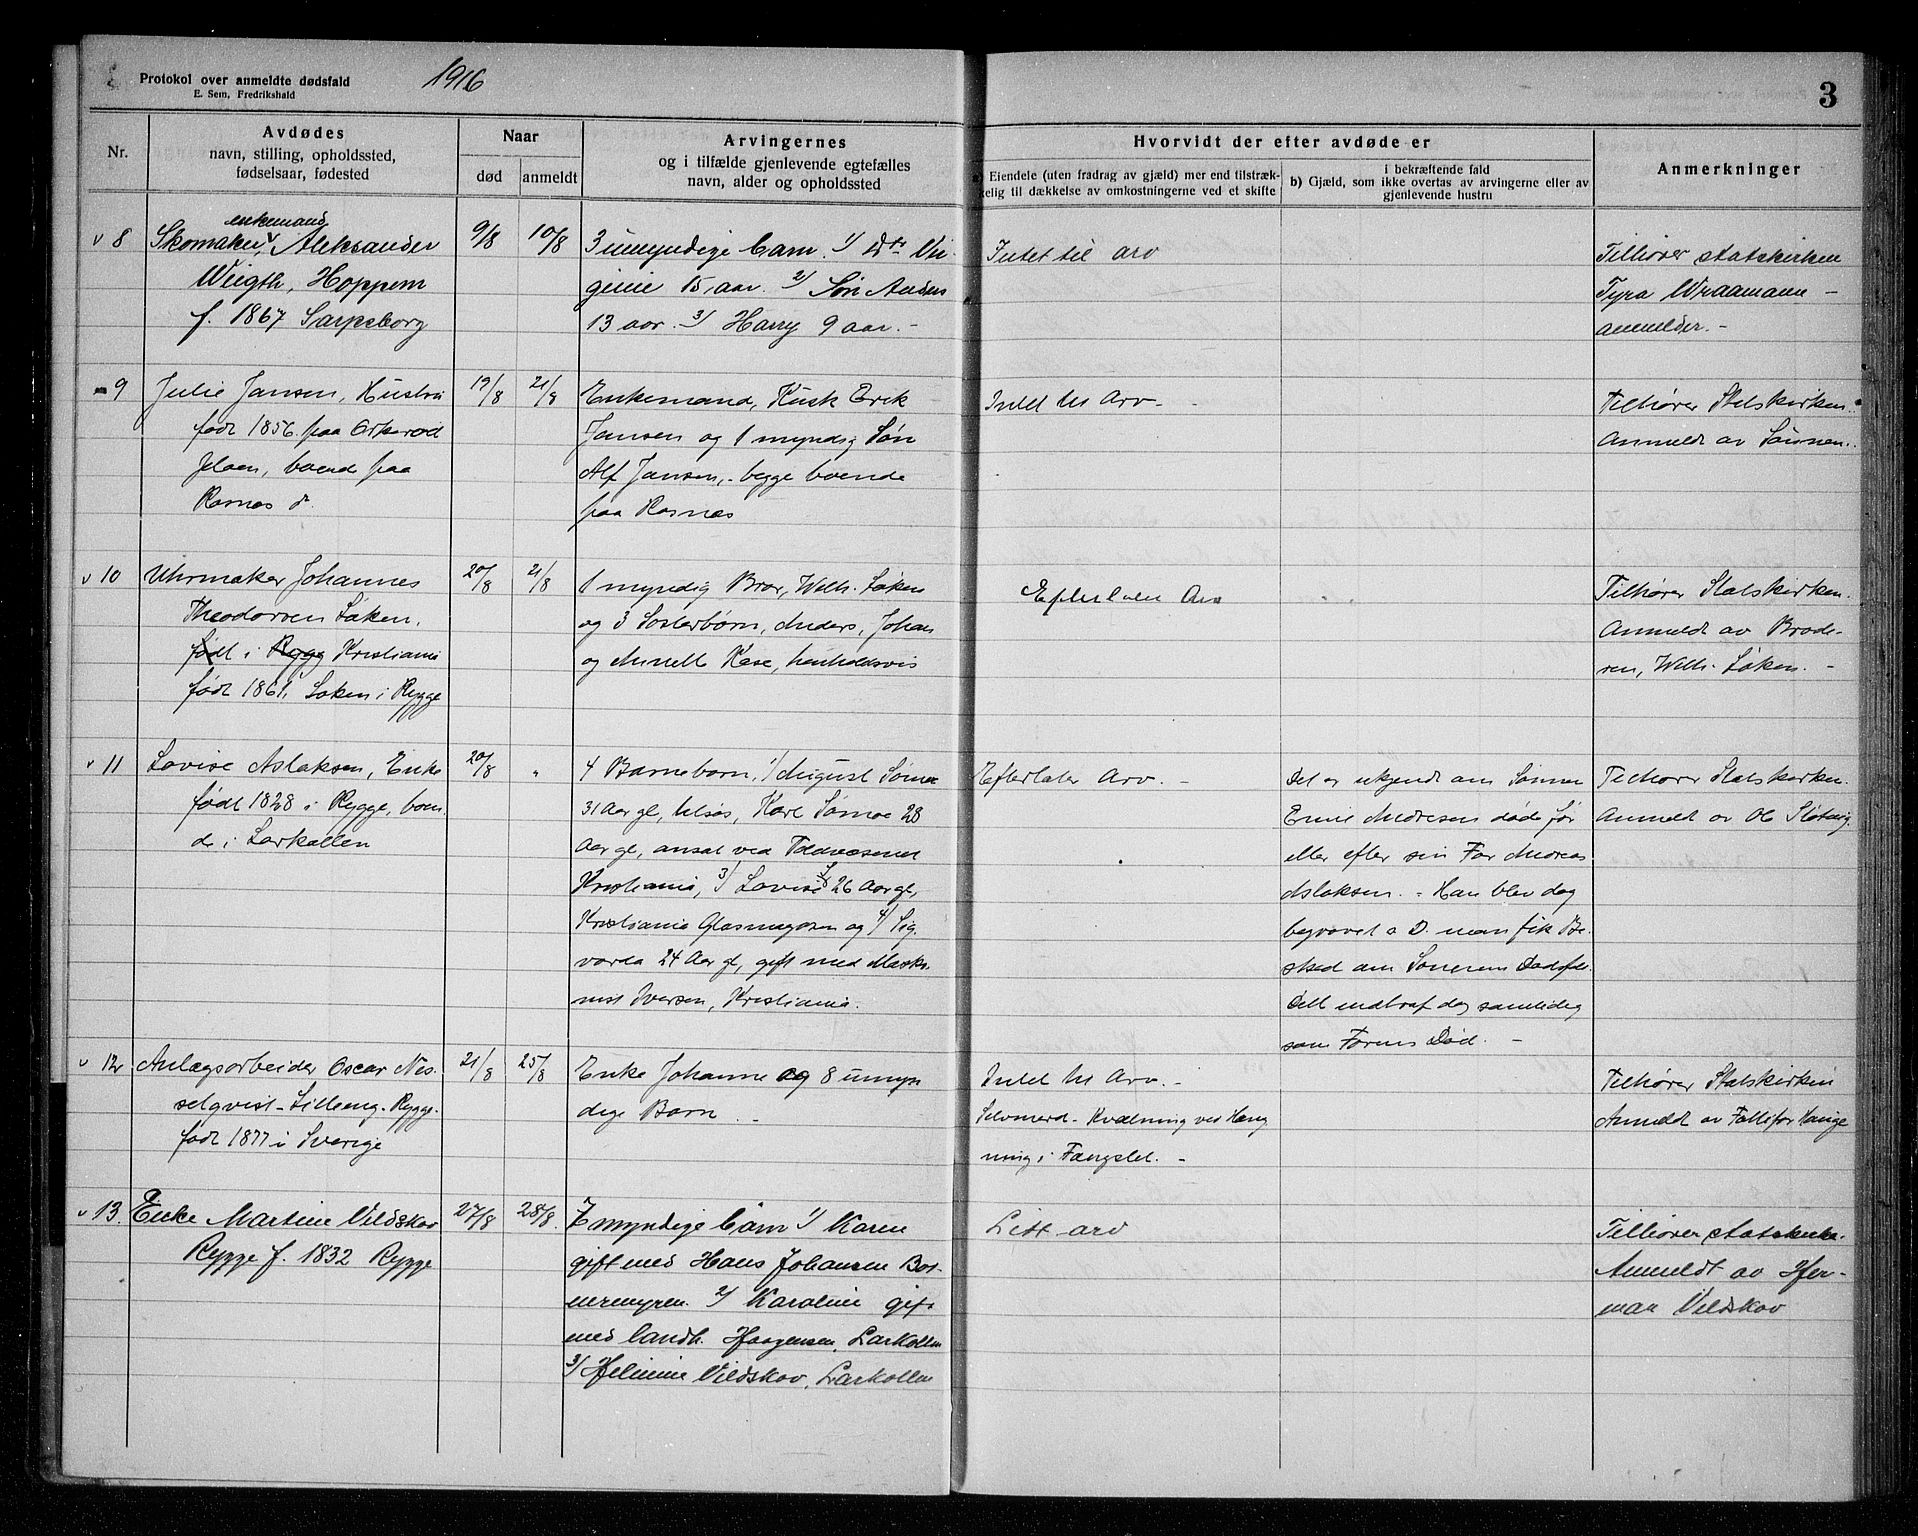 Protokol over anmeldte dødsfald
E. Sem, Fredrikshald
1916
3
Nr.
Avdødes
navn, stilling, opholdssted,
fødselsaar, fødested
Naar
død
anmeldt
Arvingernes
og i tilfælde gjenlevende egtefælles
navn, alder og opholdssted
Hvorvidt der efter avdøde er
Eiendele (uten fradrag av gjæld) mer end tilstræk-
kelig til dækkelse av omkostningerne ved et skifte
i bekræftende fald
b) Gjæld, som ikke overtas av arvingerne eller av
gjenlevende hustru
Anmerkninger
v 8
enkemand
Skomaker, Aleksander
Weigth, Hoppern
f. 1867 Sarpsborg
9/8
10/8
3 umyndige barn. 1/ Dtr Vir-
ginie 15 aar. 2/ Søn Anders
13 aar. 3/ Harry 9 aar. -
Intet til arv
Tilhører statskirken
Tyra Wraamann -
anmelder. -
9
Julie Jansen, Hustru
født 1856 paa Orkerød
Jeløen, boende paa
Rosnes d.
19/8
21/8
Enkemand, Kusk Erik
Jansen og 1 myndig Søn
Alf Jansen, begge boende
paa Rosnæs
Intet til Arv. -
Tilhører Statskirken.
Anmeldt av Sønnen.
v 10
Uhrmaker Johannes
Theodorsen Løken,
født i Rygge Kristiania
født 1861, Løken i Rygge
20/8
21/8
1 myndig Bror, Wilh. Løken
og 3 Søsterbørn, Anders, Johan
og Minell Kase, henholdsvis
Efterlater Arv
Tilhører Statskirken.
Anmeldt av Brode-
ren, Wilh. Løken. -
v 11
Lovise Aslaksen, Enke
født 1828 i Rygge, boen
de i Larkollen
20/8
"
4 Barnebørn, 1/ August Sørnoe
31 Aar gl, tilsøs, Karl Sørnoe 28
Aar gl, ansat ved Toldvæsenet
Kristiania, 3/ Lovise 26 Aar gl,
Kristiania Glasmagasin og 4/ Sig
varda 24 Aar gl, gift med Maski-
nist Iversen, Kristiania.
Efterlater Arv. -
Det er ukjendt om Sønnen
Emil Andresen døde før
eller efter sin Far Andreas
Aslaksen. - Han blev dog
begravet a D. man fik Be-
sked om Sønnens Dødsfald.
Det indtraf dog samtidig
som Farens Død. -
Tilhører Statskirken.
Anmeldt av Ol Sletvig.
v 12
Anlægsarbeider Oscar Nes-
selqvist - Lilleeng - Rygge.
født 1877 i Sverige
21/8
25/8
Enke Johanne og 8 umyn
dige Barn. -
Intet til Arv. -
Selvmord - Kvælning ved Hæng
ning i Fængslet. -
Tilhører Statskirken
Anmeldt av Fattigfor Hauge
v 13.
Enke Martine Vildskov
Rygge f. 1832 Rygge
27/8
28/8.
3 myndige barn 1/ Karen
gift med Hans Johansen Bos-
nermyren. 2/ Karoline gift
med landh. Haagensen, Larkollen
3/ Helmine Vildskov, Larkollen
Litt arv
Tilhører statskirke.
Anmeldt av Her-
man Vildskov